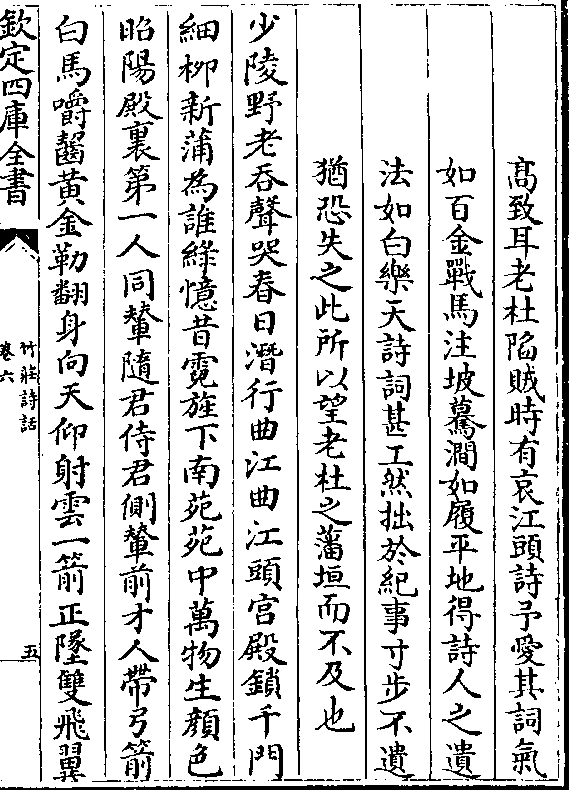 髙致耳老杜陷賊時有哀江頭詩予愛其詞氣
如百金戰馬注坡驀澗如履平地得詩人之遺
法如白樂天詩詞甚工然拙於紀事寸步不遺
猶恐失之此所以望老杜之藩垣而不及也
少陵野老吞聲哭春日潛行曲江曲江頭宫殿鎖千門
細柳新蒲為誰緑憶昔霓旌下南苑苑中萬物生顔色
昭陽殿裏第一人同輦隨君侍君側輦前才人帶弓箭
白馬嚼齧黄金勒翻身向天仰射雲一箭正墜雙飛翼
欽定四庫全書
竹莊詩話
卷六
五